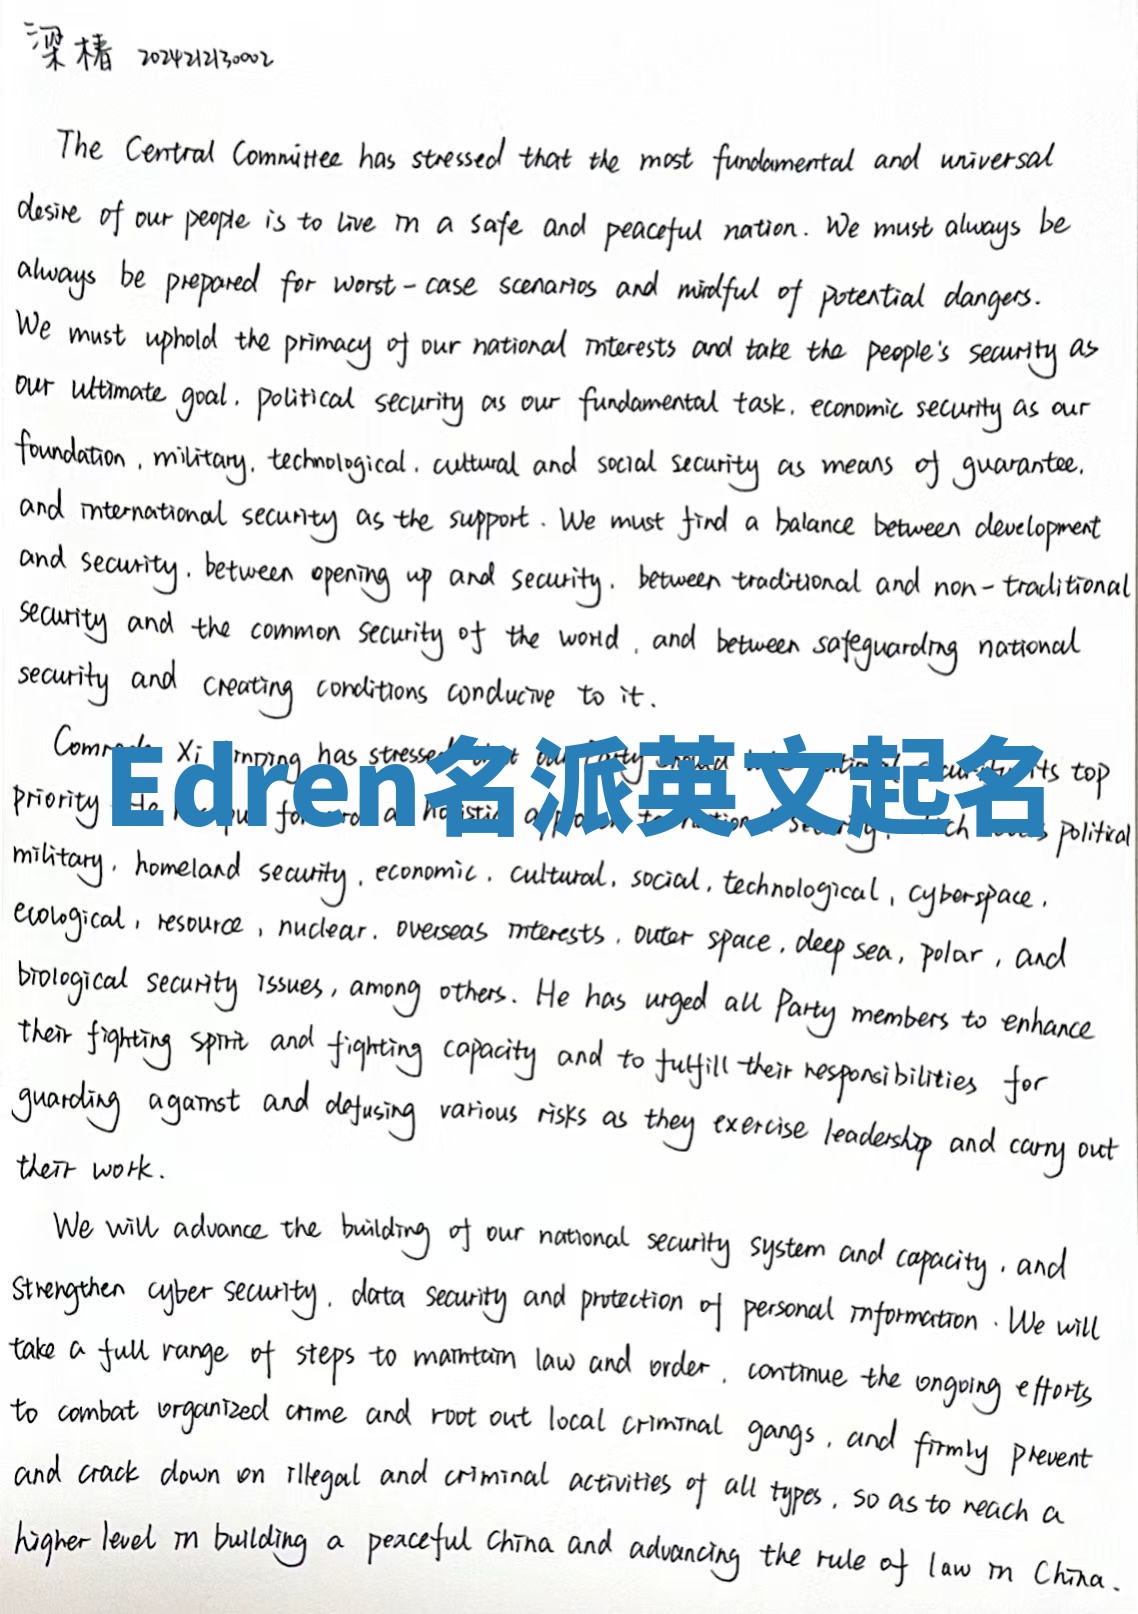 梁楮 2024212130002
The Central Committee has stressed that the most fundamental and universal
desire of our people is to live in a safe and peaceful nation. We must always be
always be prepared for worst-case scenarios and mindful of potential dangers.
We must uphold the primacy of our national interests and take the people's security as
our ultimate goal, political security as our fundamental task, economic security as our
foundation, military, technological, cultural and social security as means of guarantee,
and international security as the support. We must find a balance between development
and security, between opening up and security, between traditional and non-traditional
security and the common security of the world, and between safeguarding national
security and creating conditions conducive to it.
Xi has its top
Edren名派英文起名
priority political
military, homeland security, economic, cultural, social, technological, cyberspace,
ecological, resource, nuclear, overseas interests, outer space, deep sea, polar, and
biological security issues, among others. He has urged all Party members to enhance
their fighting spirit and fighting capacity and to fulfill their responsibilities for
guarding against and defusing various risks as they exercise leadership and carry out
their work.
We will advance the building of our national security system and capacity, and
strengthen cyber security, data security and protection of personal information. We will
take a full range of steps to maintain law and order, continue the ongoing efforts
to combat organized crime and root out local criminal gangs, and firmly prevent
and crack down on illegal and criminal activities of all types, so as to reach a
higher level in building a peaceful China and advancing the rule of law in China.